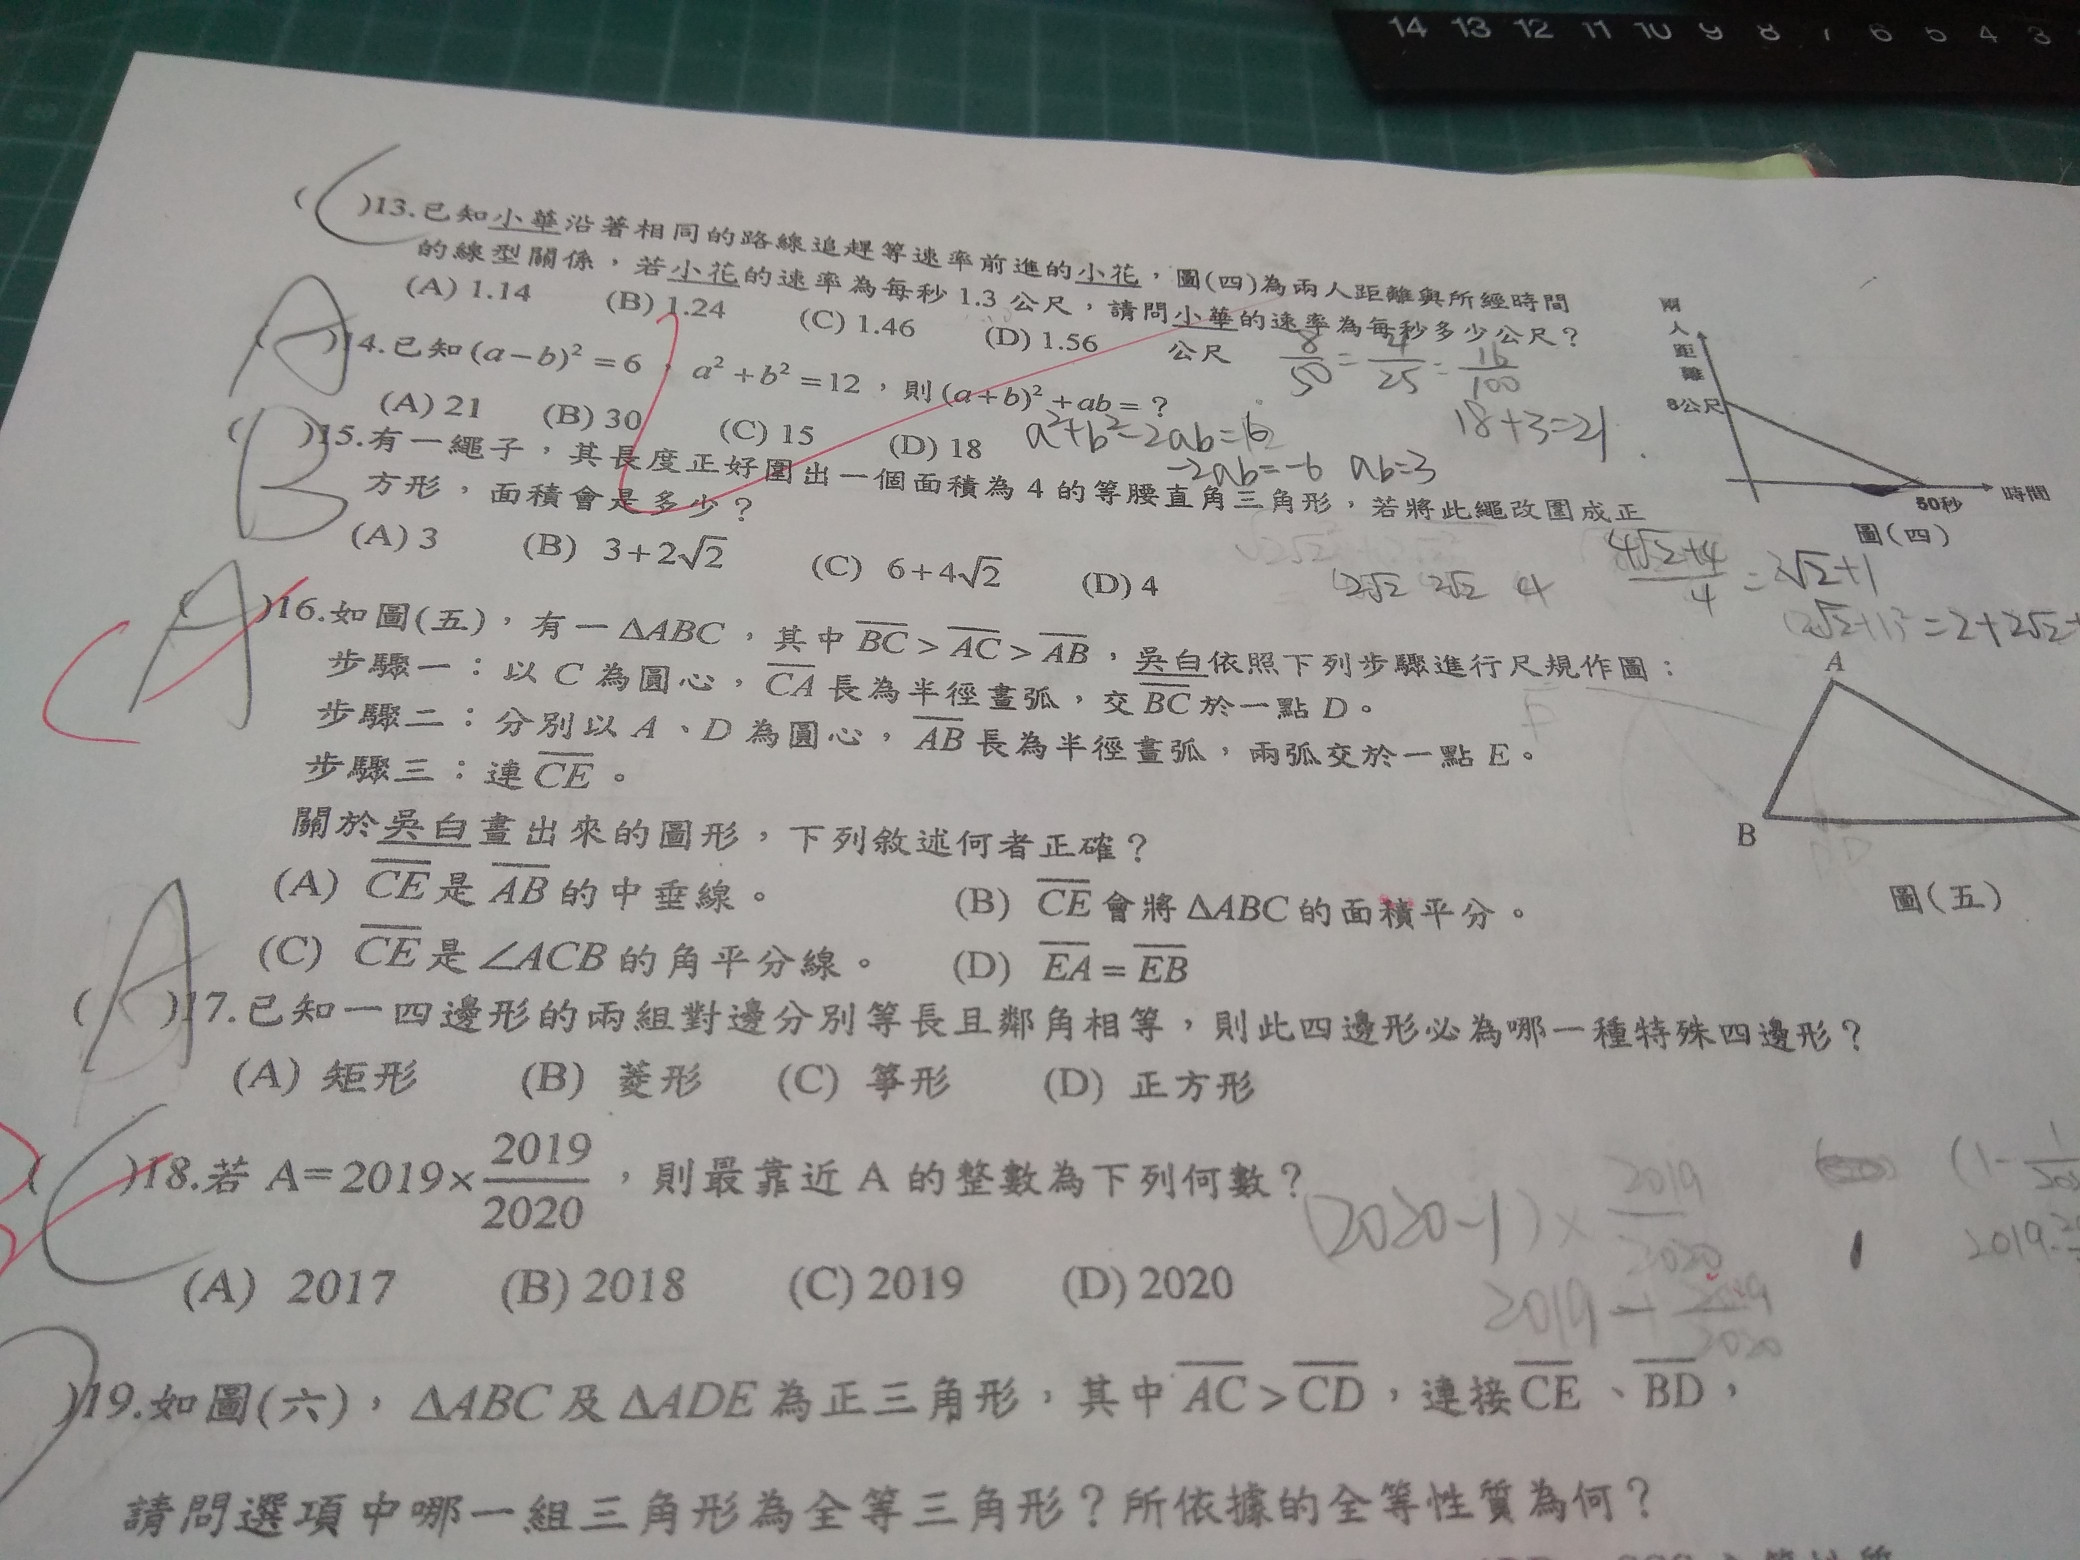 14 13 12 11 10 9 8 7 6 5 4 3
( C )13.已知小華沿著相同的路線追趕等速率前進的小花，圖(四)為兩人距離與所經時間
的線型關係，若小花的速率為每秒 1.3 公尺，請問小華的速率為每秒多少公尺？
(A) 1.14 (B) 1.24 (C) 1.46 (D) 1.56 公尺
8/50 = 4/25 = 16/100
兩人距離
8公尺
50秒
時間
圖(四)
( A )14.已知 (a−b)² = 6，a² + b² = 12，則 (a+b)² + ab = ？
(A) 21 (B) 30 (C) 15 (D) 18
18+3=21
a²+b²−2ab=6
−2ab=−6 ab=3
( B )15.有一繩子，其長度正好圍出一個面積為 4 的等腰直角三角形，若將此繩改圍成正
方形，面積會是多少？
(A) 3 (B) 3+2√2 (C) 6+4√2 (D) 4
2√2 2√2 4
(4√2+4)/4 = √2+1
(√2+1)² = 2+2√2+
( A )16.如圖(五)，有一 ΔABC，其中 BC > AC > AB，吳白依照下列步驟進行尺規作圖：
C
步驟一：以 C 為圓心，CA 長為半徑畫弧，交 BC 於一點 D。
步驟二：分別以 A、D 為圓心，AB 長為半徑畫弧，兩弧交於一點 E。
步驟三：連 CE。
關於吳白畫出來的圖形，下列敘述何者正確？
(A) CE 是 AB 的中垂線。 (B) CE 會將 ΔABC 的面積平分。
(C) CE 是 ∠ACB 的角平分線。 (D) EA = EB
A
B
E
D
圖(五)
( A )17.已知一四邊形的兩組對邊分別等長且鄰角相等，則此四邊形必為哪一種特殊四邊形？
(A) 矩形 (B) 菱形 (C) 箏形 (D) 正方形
( C )18.若 A=2019×2019/2020，則最靠近 A 的整數為下列何數？
(2020−1)×2019/2020
2019−2019/2020
(A) 2017 (B) 2018 (C) 2019 (D) 2020
)19.如圖(六)，ΔABC 及 ΔADE 為正三角形，其中 AC > CD，連接 CE、BD，
請問選項中哪一組三角形為全等三角形？所依據的全等性質為何？